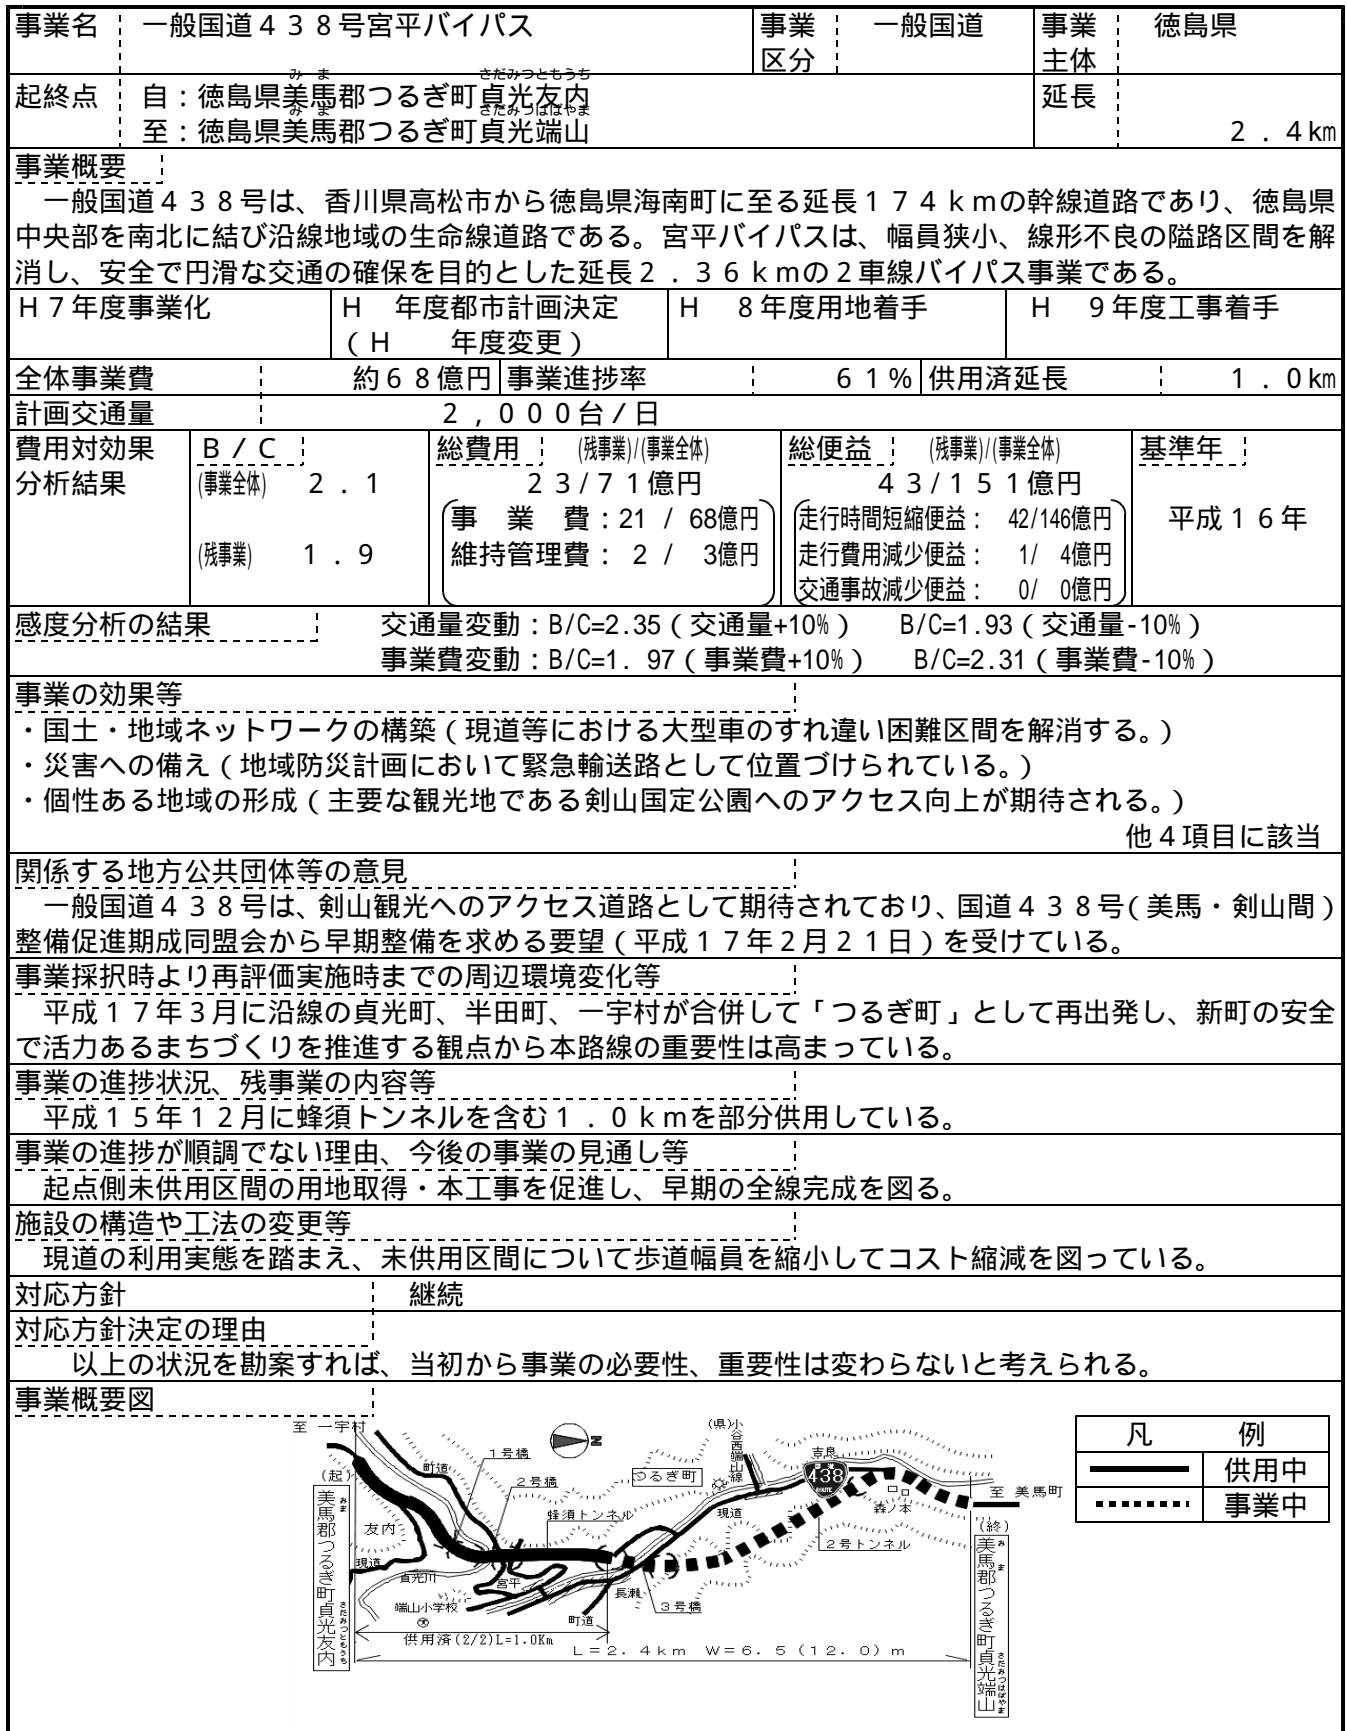 事業名 一般国道４３８号宮平バイパス 事業 一般国道 事業 徳島県
区分 主体
みま さだみつともうち
起終点 自：徳島県美馬郡つるぎ町貞光友内 延長
みま さだみつはばやま
至：徳島県美馬郡つるぎ町貞光端山 ２．４㎞
事業概要
一般国道４３８号は、香川県高松市から徳島県海南町に至る延長１７４ｋｍの幹線道路であり、徳島県
中央部を南北に結び沿線地域の生命線道路である。宮平バイパスは、幅員狭小、線形不良の隘路区間を解
消し、安全で円滑な交通の確保を目的とした延長２．３６ｋｍの２車線バイパス事業である。
Ｈ７年度事業化 Ｈ　年度都市計画決定 Ｈ　８年度用地着手 Ｈ　９年度工事着手
（Ｈ　　年度変更）
全体事業費 約６８億円 事業進捗率 ６１％ 供用済延長 １．０㎞
計画交通量 ２，０００台／日
費用対効果 Ｂ／Ｃ 総費用 (残事業)/(事業全体) 総便益 (残事業)/(事業全体) 基準年
分析結果 (事業全体) ２．１ ２３/７１億円 ４３/１５１億円
事　業　費：21 / 68億円 走行時間短縮便益： 42/146億円 平成１６年
(残事業) １．９ 維持管理費： 2 / 3億円 走行費用減少便益： 1/ 4億円
交通事故減少便益： 0/ 0億円
感度分析の結果 交通量変動：B/C=2.35（交通量+10%） B/C=1.93（交通量-10%）
事業費変動：B/C=1. 97（事業費+10%） B/C=2.31（事業費-10%）
事業の効果等
・国土・地域ネットワークの構築（現道等における大型車のすれ違い困難区間を解消する。）
・災害への備え（地域防災計画において緊急輸送路として位置づけられている。）
・個性ある地域の形成（主要な観光地である剣山国定公園へのアクセス向上が期待される。）
他４項目に該当
関係する地方公共団体等の意見
一般国道４３８号は、剣山観光へのアクセス道路として期待されており、国道４３８号（美馬・剣山間）
整備促進期成同盟会から早期整備を求める要望（平成１７年２月２１日）を受けている。
事業採択時より再評価実施時までの周辺環境変化等
平成１７年３月に沿線の貞光町、半田町、一宇村が合併して「つるぎ町」として再出発し、新町の安全
で活力あるまちづくりを推進する観点から本路線の重要性は高まっている。
事業の進捗状況、残事業の内容等
平成１５年１２月に蜂須トンネルを含む１．０ｋｍを部分供用している。
事業の進捗が順調でない理由、今後の事業の見通し等
起点側未供用区間の用地取得・本工事を促進し、早期の全線完成を図る。
施設の構造や工法の変更等
現道の利用実態を踏まえ、未供用区間について歩道幅員を縮小してコスト縮減を図っている。
対応方針 継続
対応方針決定の理由
以上の状況を勘案すれば、当初から事業の必要性、重要性は変わらないと考えられる。
事業概要図
凡　例
供用中
事業中
至 一宇村
(起)
美馬郡つるぎ町貞光友内
みま さだみつともうち
町道
1号橋
2号橋
N
つるぎ町
(県)小谷西端山線
吉良
438
ROUTE
至 美馬町
友内
現道
貞光川
蜂須トンネル
宮平
現道
森ノ本
2号トンネル
(終)
美馬郡つるぎ町貞光端山
みま さだみつはばやま
端山小学校
長瀬
3号橋
町道
供用済(2/2)L=1.0Km
Ｌ＝２．４ｋｍ　Ｗ＝６．５（１２．０）ｍ